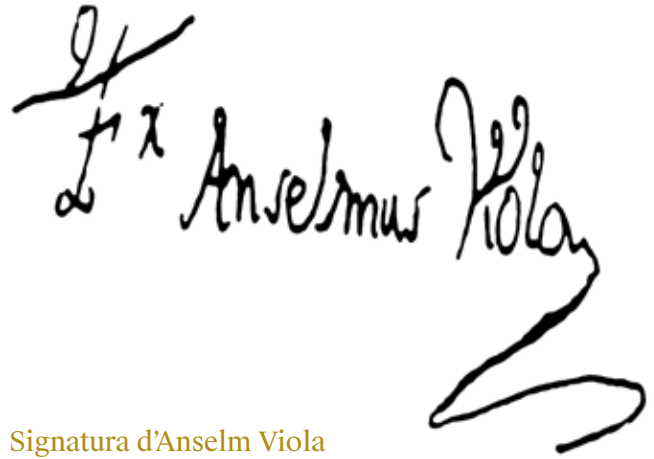 Fr Anselmus Viola
Signatura d’Anselm Viola